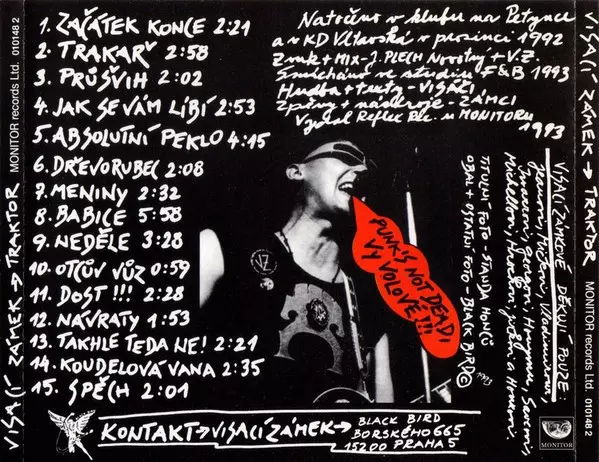 VISACÍ ZÁMEK → TRAKTOR MONITOR records Ltd. 010148 2
1. ZAČÁTEK KONCE 2:21
2. TRAKAŘ 2:58
3. PRŮŠVIH 2:02
4. JAK SE VÁM LÍBÍ 2:53
5. ABSOLUTNÍ PEKLO 4:15
6. DŘEVORUBEC 2:08
7. MENINY 2:32
8. BABICE 5:58
9. NEDĚLE 3:28
10. OTCŮV VŮZ 0:59
11. DOST!!! 2:28
12. NÁVRATY 1:53
13. TAKHLE TEDA NE! 2:21
14. KOUDELOVÁ VANA 2:35
15. SPĚCH 2:01
Natočeno v klubu na Petynce
a v KD Vltavská v prosinci 1992
Zvuk + MIX - J. PLECH Novotný + V.Z.
Smícháno ve studiu F&B 1993
Hudba + texty - VISÁČI
Zpěvy + nástroje - ZÁMCI
Vydal Reflex Rec. u MONITORU
1993
PUNK'S NOT DEAD!
VY VOLOVÉ!!!
TITULNÍ FOTO - STANDA HONCŮ
OBAL + OSTATNÍ FOTO - BLACK BIRD ©
1993
VISACÍ ZÁMKOVÉ DĚKUJÍ POUZE:
VZ
KONTAKT → VISACÍ ZÁMEK →
BLACK BIRD
BORSKÉHO 665
15200 PRAHA 5
MONITOR
VISACÍ ZÁMEK → TRAKTOR MONITOR records Ltd. 010148 2